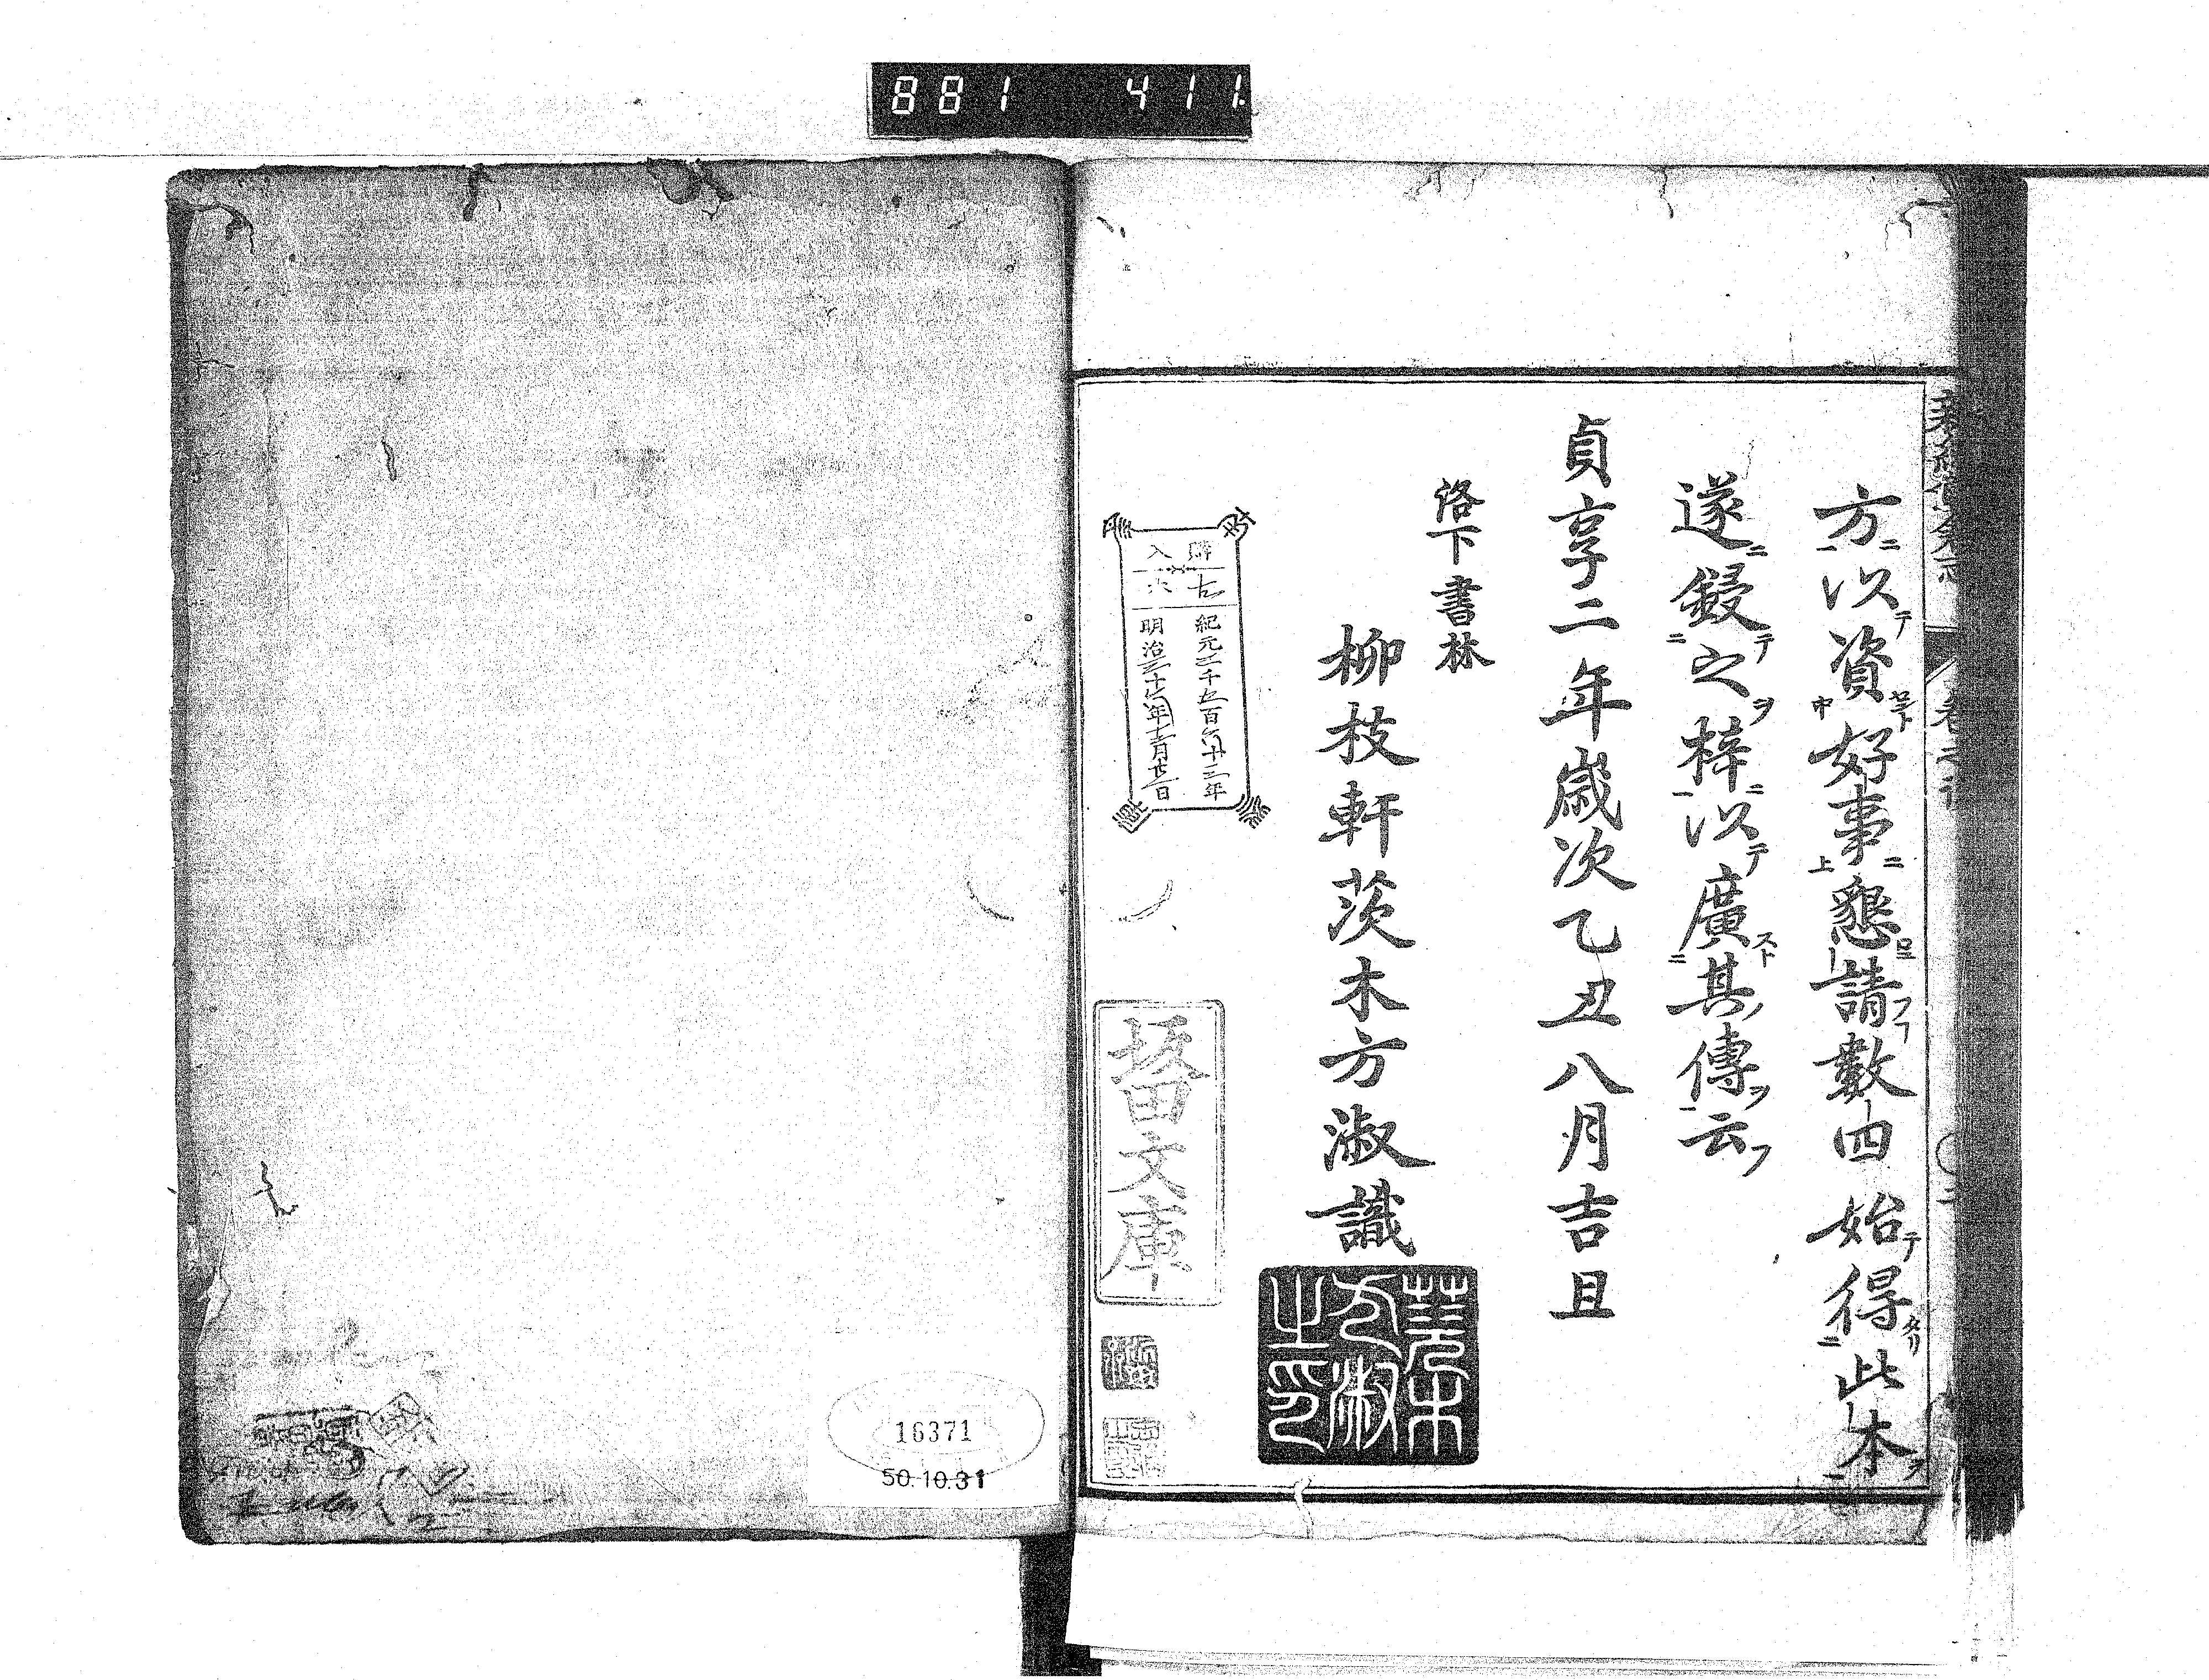 881 411
方以資好事懇請數四始得此本
遂鋟之梓以廣其傳云
貞享二年歲次乙丑八月吉旦
洛下書林
柳枝軒茨木方淑識
茨木
方淑
之印
購入
紀元二千五百六十三年
明治三十六年十二月廿一日
坂田文庫
16371
50.10.31